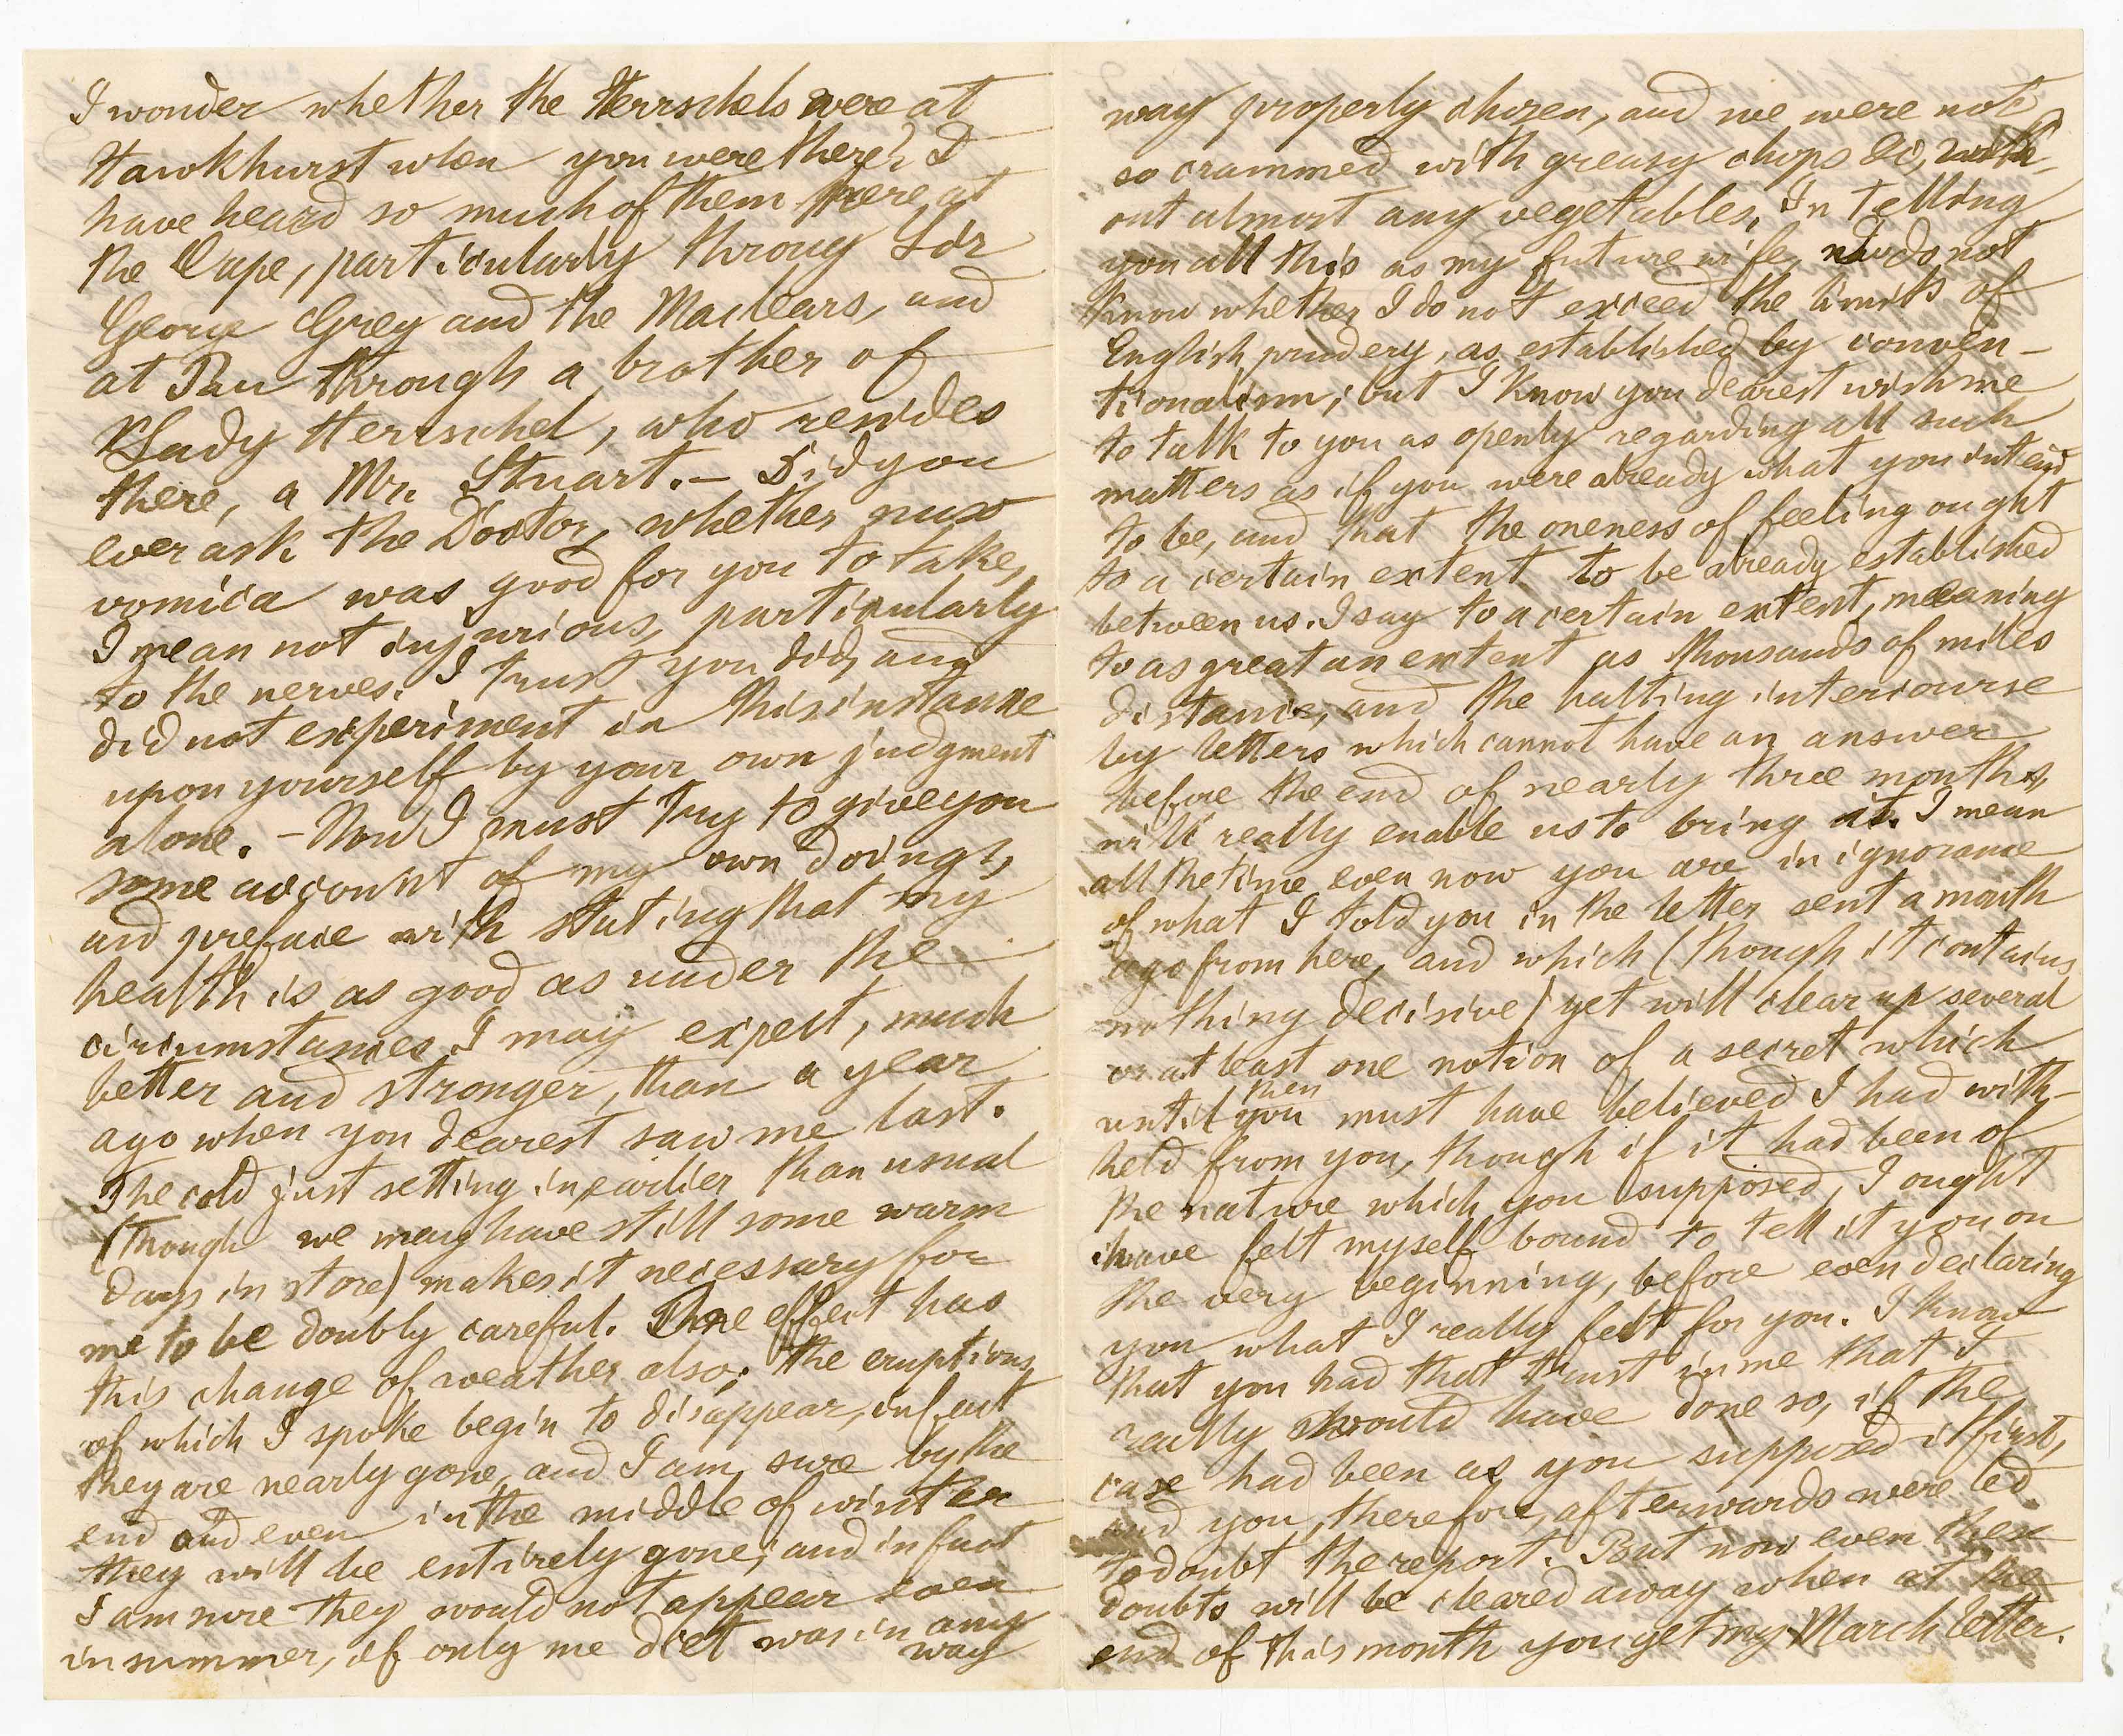 I wonder whether the Herrschels were at
Hawkhurst when you were there? I
have heard so much of them here at
the Cape, particularly throug Sir
George Grey and the Maclears, and
at Pau through a brother of
Lady Herrschel, who resides
there, a Mr. Stuart. – Did you
ever ask the Doctor, whether nux
vomica was good for you to take,
I mean not injurious, particularly
to the nerves. I trust you did, and
did not experiment in this instanne
upon yourself by your own judgment
alone. – Now I must try to give you
some account of my own doings,
and preface with stating that my
health is as good as under the
circumstances I may expect, much
better and stronger, than a year
ago when you dearest saw me last.
The cold just setting in earlier than usual
(though we may have still some warm
days in store) makes it necessary for
me to be doubly careful. One effect has
this change of weather also; the eruptions
of which I spoke begin to disappear, in fact
they are nearly gone, and I am sure by the
end and even in the middle of winter
they will be entirely gone; and in fact
I am sure they would not appear even
in summer, if only me diet was in any
way
way properly chosen, and we were not
so crammed with greasy chops &c, with-
out almost any vegetables. In telling
you all this as my future wife, not
know whether I do not exceed the limits of
English prudery, as established by conven-
tionalism; but I know you dearest wish me
to talk to you as openly regarding all such
matters as if you were already what you intend
to be, and that the oneness of feeling ought
to a certain extent to be already established
between us. I say to a certain extent, meaning
to as great an extent as thousands of miles
distance, and the halting intercourse
by letters which cannot have an answer
before the end of nearly three months,
will really enable us to bring it. I mean
all the time even now you are in ignorance
of what I told you in the letter sent a month
ago from here, and which (though it contains
nothing decisive) yet will clear up several
or at least one notion of a secret which
until then you must have believed I had with-
held from you, though if it had been of
the nature which you supposed, I ought
have felt myself bound to tell it you on
the very beginning, before even declaring
you what I really felt for you. I know
that you had that trust in me that I
really should have done so, if the
case had been as you supposed it first,
and you, therefore, afterwards were led
to doubt the report. But now even these
doubts will be cleared away when at the
end of this month you get my March letter.